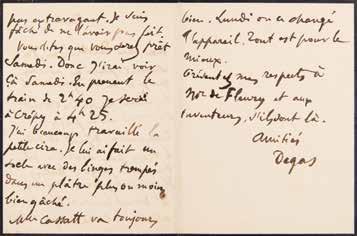 pas extravagant. Je suis
fâché de ne l'avoir pas fait.
Vous dites que vous serez prêt
Samedi. Donc j'irai voir
ça Samedi. En prenant le
train de 2h 40 je serai
à Crépy à 4h 25.
J'ai beaucoup travaillé la
petite cire. Je lui ai fait un
socle avec des linges trempés
dans un plâtre plus ou moins
bien gâché.
Mlle Cassatt va toujours
bien. Lundi on a changé
l'appareil. Tout est pour le
mieux.
Présentez mes respects à
de Fleury et aux
inventeurs, s'ils sont là.
Amitiés
Degas